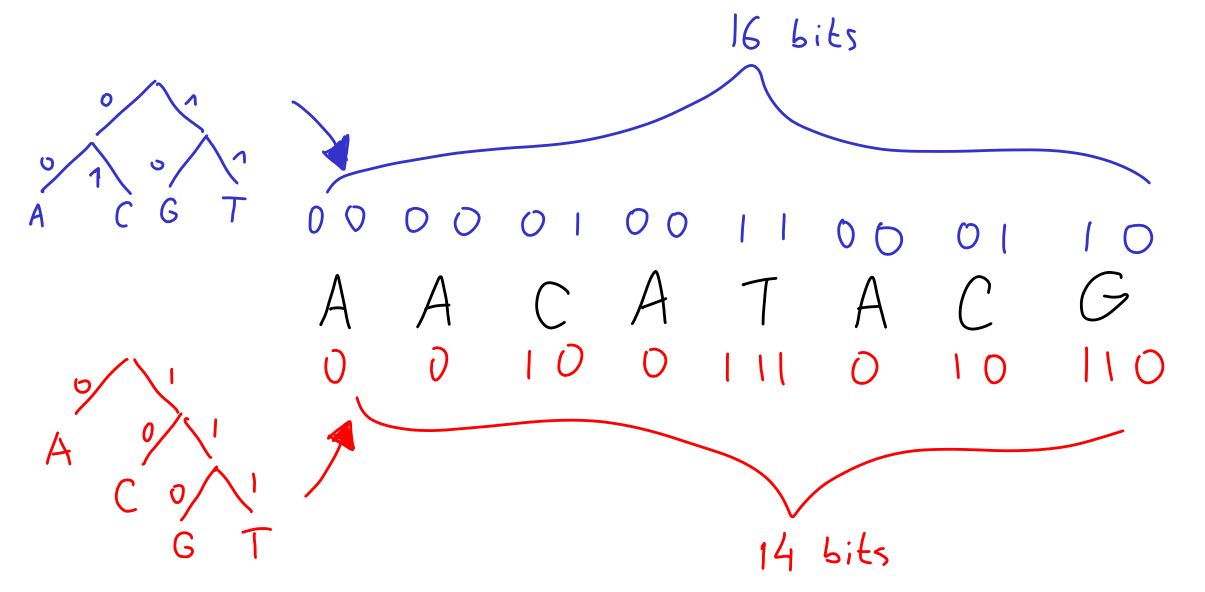 16 bits
0 1
0 1 0 1
A C G T
00 00 01 00 11 00 01 10
A A C A T A C G
0 0 10 0 111 0 10 110
0 1
A 0 1
C 0 1
G T
14 bits